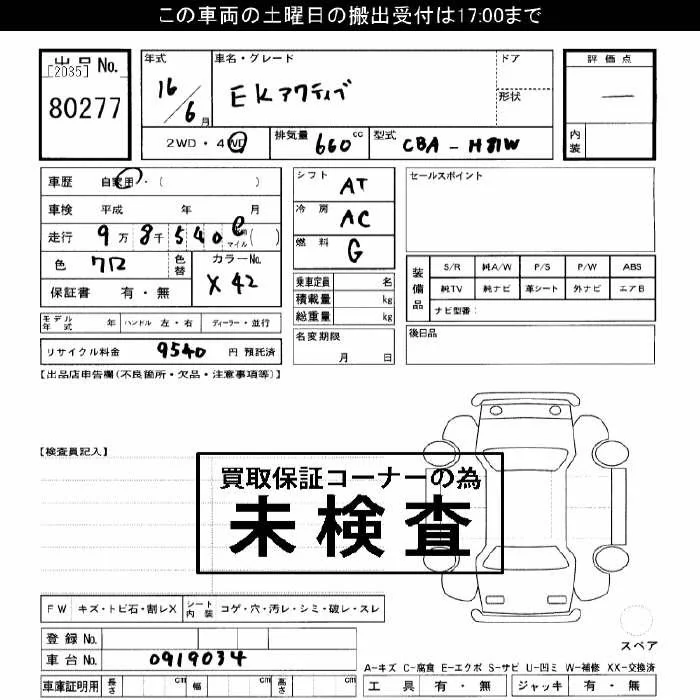 この車両の土曜日の搬出受付は17:00まで
出品No.
[2035]
80277
年式
16/6月
車名・グレード
EKアクティブ
ドア
形状
評価点
—
内装
2WD・4WD
排気量 660 cc
型式 CBA-H81W
車歴 自家用・( )
車検 平成 年 月
走行 9万8千540
マイル( )
色 クロ
色替
カラーNo.
X42
保証書 有・無
シフト AT
冷房 AC
燃料 G
乗車定員 名
積載量 kg
総重量 kg
セールスポイント
装備品
S/R 純A/W P/S P/W ABS
純TV 純ナビ 革シート 外ナビ エアB
ナビ型番:
モデル年式 年 ハンドル 左・右 ディーラー・並行
名変期限
月 日
後日品
リサイクル料金 9540 円 預託済
【出品店申告欄(不良箇所・欠品・注意事項等)】
【検査員記入】
買取保証コーナーの為
未検査
FW キズ・トビ石・割レX シート内装 コゲ・穴・汚レ・シミ・破レ・スレ
登録No.
車台No. 0919034
車庫証明用 長さ cm 幅 cm 高さ cm
スペア
A-キズ C-腐食 E-エクボ S-サビ U-凹ミ W-補修 XX-交換済
工具 有・無 ジャッキ 有・無